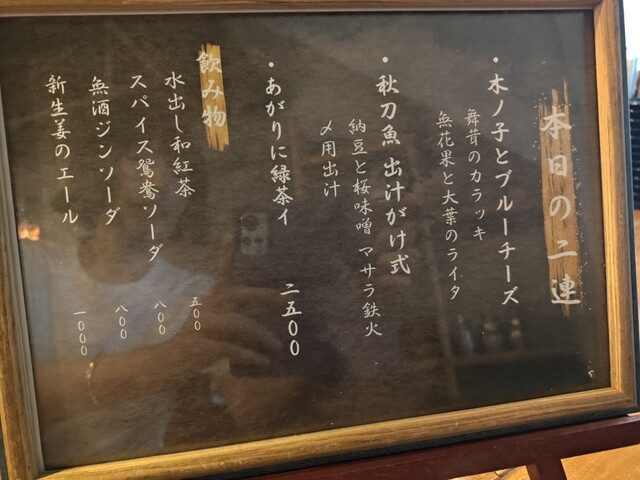 本日の二連
・木ノ子とブルーチーズ
舞茸のカラッキ
無花果と大葉のライタ
・秋刀魚 出汁がけ式
納豆と桜味噌 マサラ鉄火
〆用出汁
・あがりに緑茶イ 二五〇〇
飲み物
水出し和紅茶 五〇〇
スパイス鴛鴦ソーダ 八〇〇
無酒ジンソーダ 八〇〇
新生姜のエール 一〇〇〇